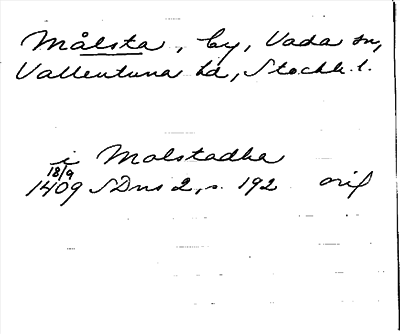 Målsta, by, Vada sn,
Vallentuna hd, Stockh. l.
i Malstadha
18/9
1409 SDns 2, s. 192 orig